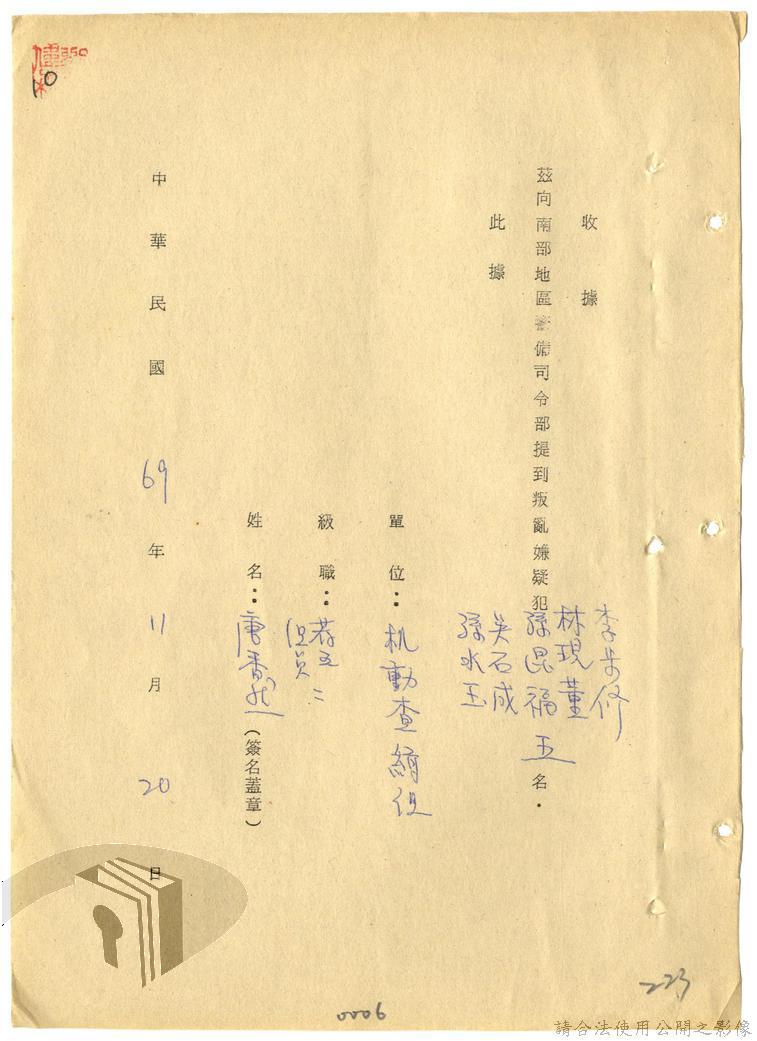 收據
茲向南部地區警備司令部提到叛亂嫌疑犯
李
修
林現董
孫昆福
吳石成
孫水玉
五名．
此據
單位：机動查緝組
級職：荐五
組員
姓名：唐香
（簽名蓋章）
中華民國69年11月20日
10
223
0006
請合法使用公開之影像